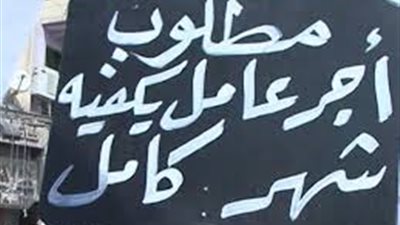 مطلوب
أجر عامل يكفيه
شهر كامل